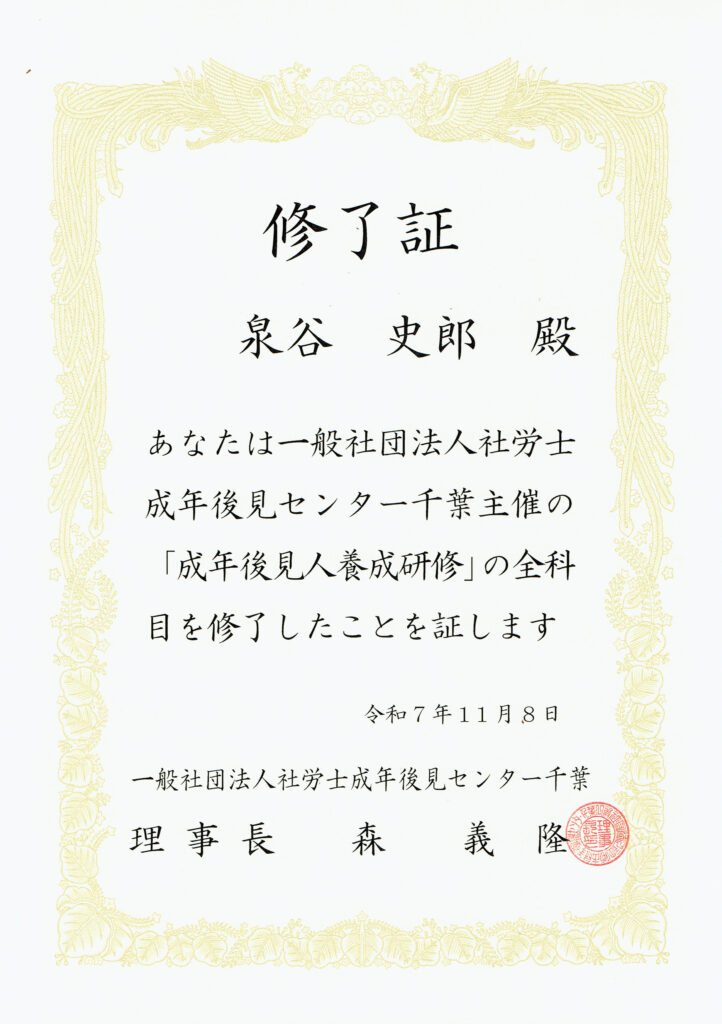 修了証
泉谷　史郎　殿
あなたは一般社団法人社労士
成年後見センター千葉主催の
「成年後見人養成研修」の全科
目を修了したことを証します
令和７年１１月８日
一般社団法人社労士成年後見センター千葉
理事長　森　義隆